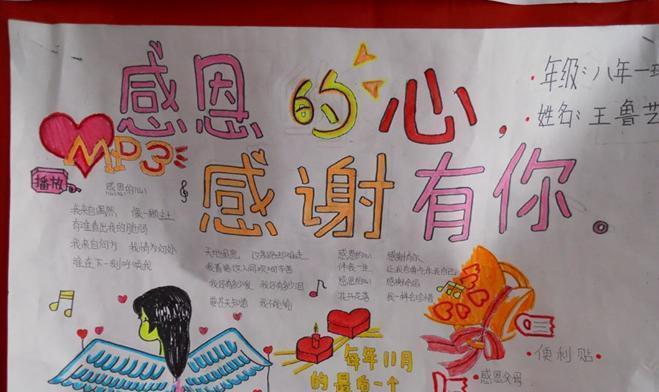 感恩的心,
感谢有你。
·年级:八年一班
·姓名:王鲁艺
MP3
播放
感恩的心
我来自偶然 像一颗尘土
有谁看出我的脆弱
我来自何方 我情归何处
谁在下一刻呼唤我
天地虽宽 这条路却难走
我看遍这人间坎坷辛苦
我还有多少爱 我还有多少泪
要苍天知道 我不认输
感恩的心 感谢有你
伴我一生 让我有勇气作我自己
感恩的心 感谢命运
花开花落 我一样会珍惜
每年11月
的最后一个
·便利贴
·感恩父母